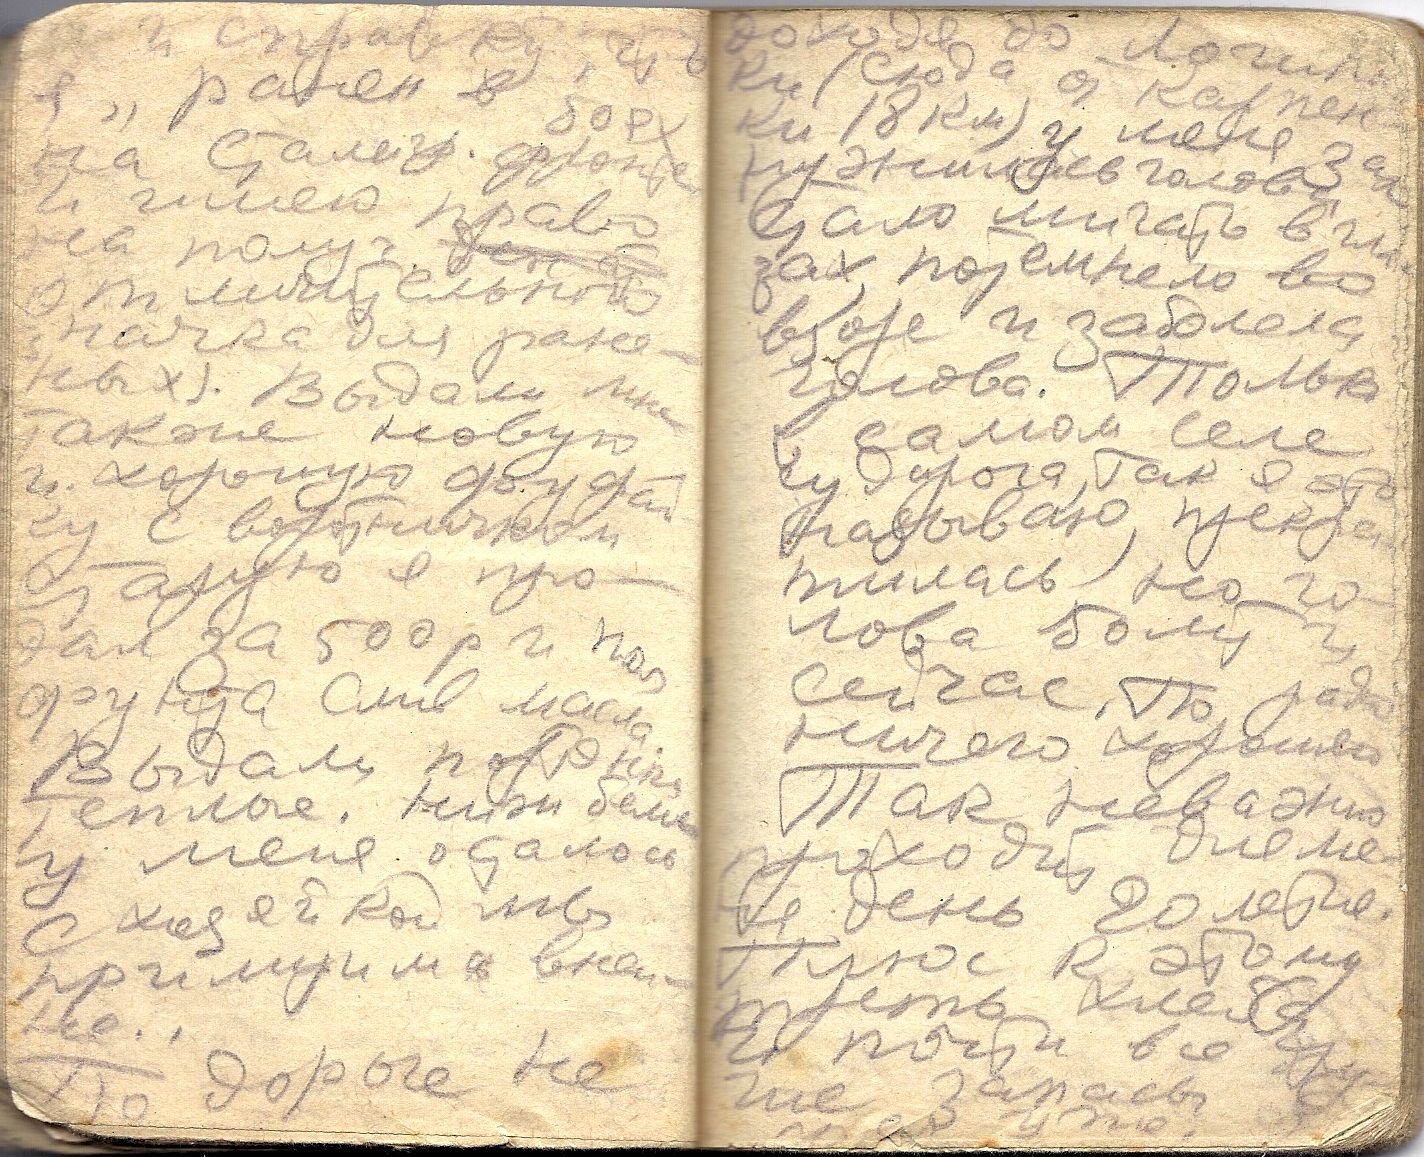 и справку, что
я „ранен в
боях
на Сталингр. фронте
и имею право
на получ.
отличительного
значка для ране-
ных). Выдали мне
также новую
и хорошую фуфай
ку с воротничком
Старую я про-
дал за 500 р и пол
фунта слив масла.
Выдали портянки
теплые. Ниж белье
у меня осталось
с хозяйкой
внеш-
не..
По дороге не
доходя до Логинов
ки (сюда от Карпен-
ки 18 км) у меня за
кружилась голова, за
стало мигать в гла
зах, потемнело во
взоре и заболела
голова. Только
в самом селе
дорога, так я это
называю, прекра
тилась, но го-
лова болит и
сейчас. По ради
ничего хорошего
Так неважно
проходит для ме-
ня день 20 летия.
Плюс к этому
треть хлеба
и почти все дру-
гие запасы